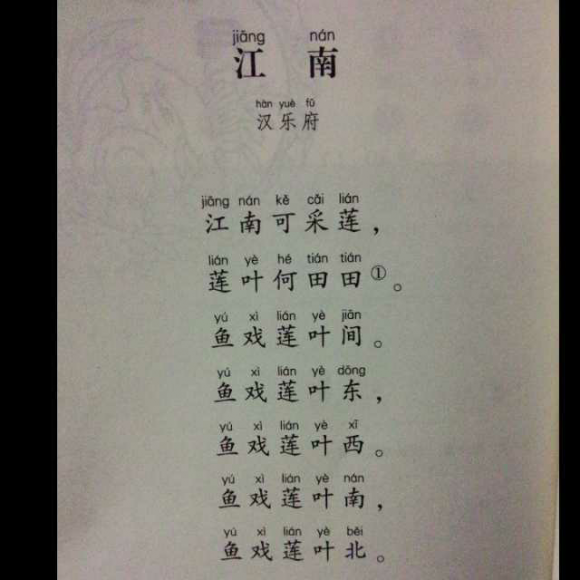 jiāng nán
江南
hàn yuè fǔ
汉乐府
jiāng nán kě cǎi lián
江南可采莲，
lián yè hé tián tián
莲叶何田田①。
yú xì lián yè jiān
鱼戏莲叶间。
yú xì lián yè dōng
鱼戏莲叶东，
yú xì lián yè xī
鱼戏莲叶西。
yú xì lián yè nán
鱼戏莲叶南，
yú xì lián yè běi
鱼戏莲叶北。